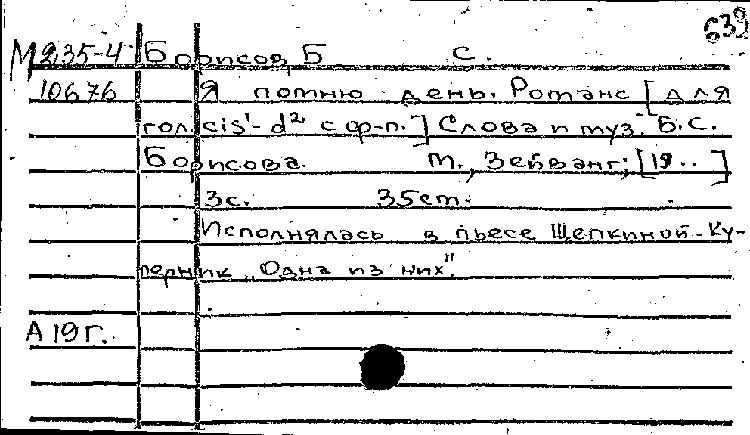 639
М 235-4 Борисов, Б. С.
10676 Я помню день. Романс [для
гол. cis¹-d² с ф-п.] Слова и муз. Б.С.
Борисова. М., Зейванг, [19..]
3с. 35 см.
Исполнялась в пьесе Щепкиной-Ку-
перник "Одна из них".
А 19 г.